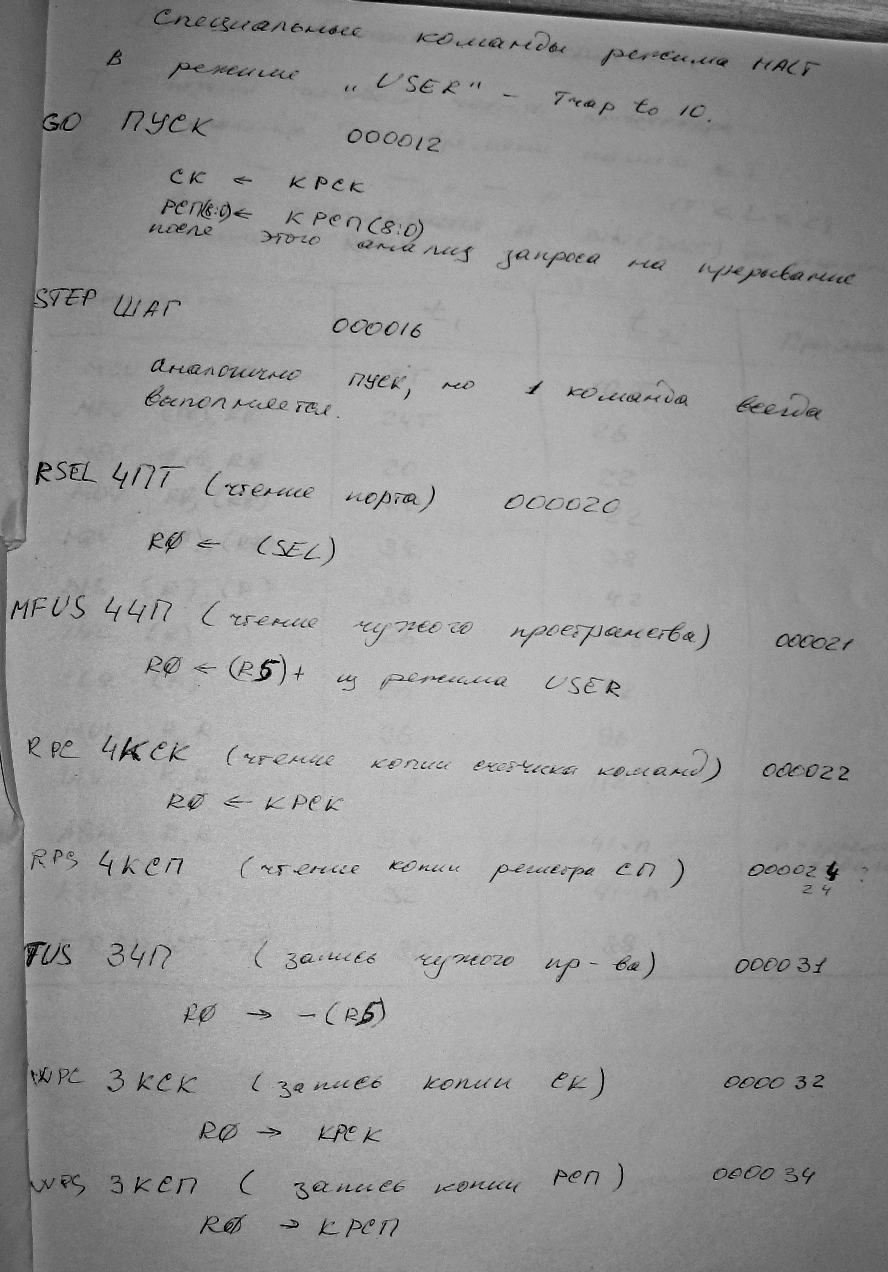 Специальные команды режима HALT
в режиме „USER" – Trap to 10.
GO ПУСК 000012
СК ← КРСК
РСП(8:0) ← КРСП(8:0)
после этого анализ запроса на прерывание
STEP ШАГ 000016
аналогично ПУСК, но 1 команда всегда
выполняется.
RSEL ЧПТ (чтение порта) 000020
RØ ← (SEL)
MFUS ЧЧП (чтение чужого пространства) 000021
RØ ← (R5)+ из режима USER
RPC ЧКСК (чтение копии счетчика команд) 000022
RØ ← КРСК
RPS ЧКСП (чтение копии регистра СП) 000024
24
TUS ЗЧП (запись чужого пр-ва) 000031
RØ → -(R5)
WPC ЗКСК (запись копии СК) 000032
RØ → КРСК
WPS ЗКСП (запись копии РСП) 000034
RØ → КРСП